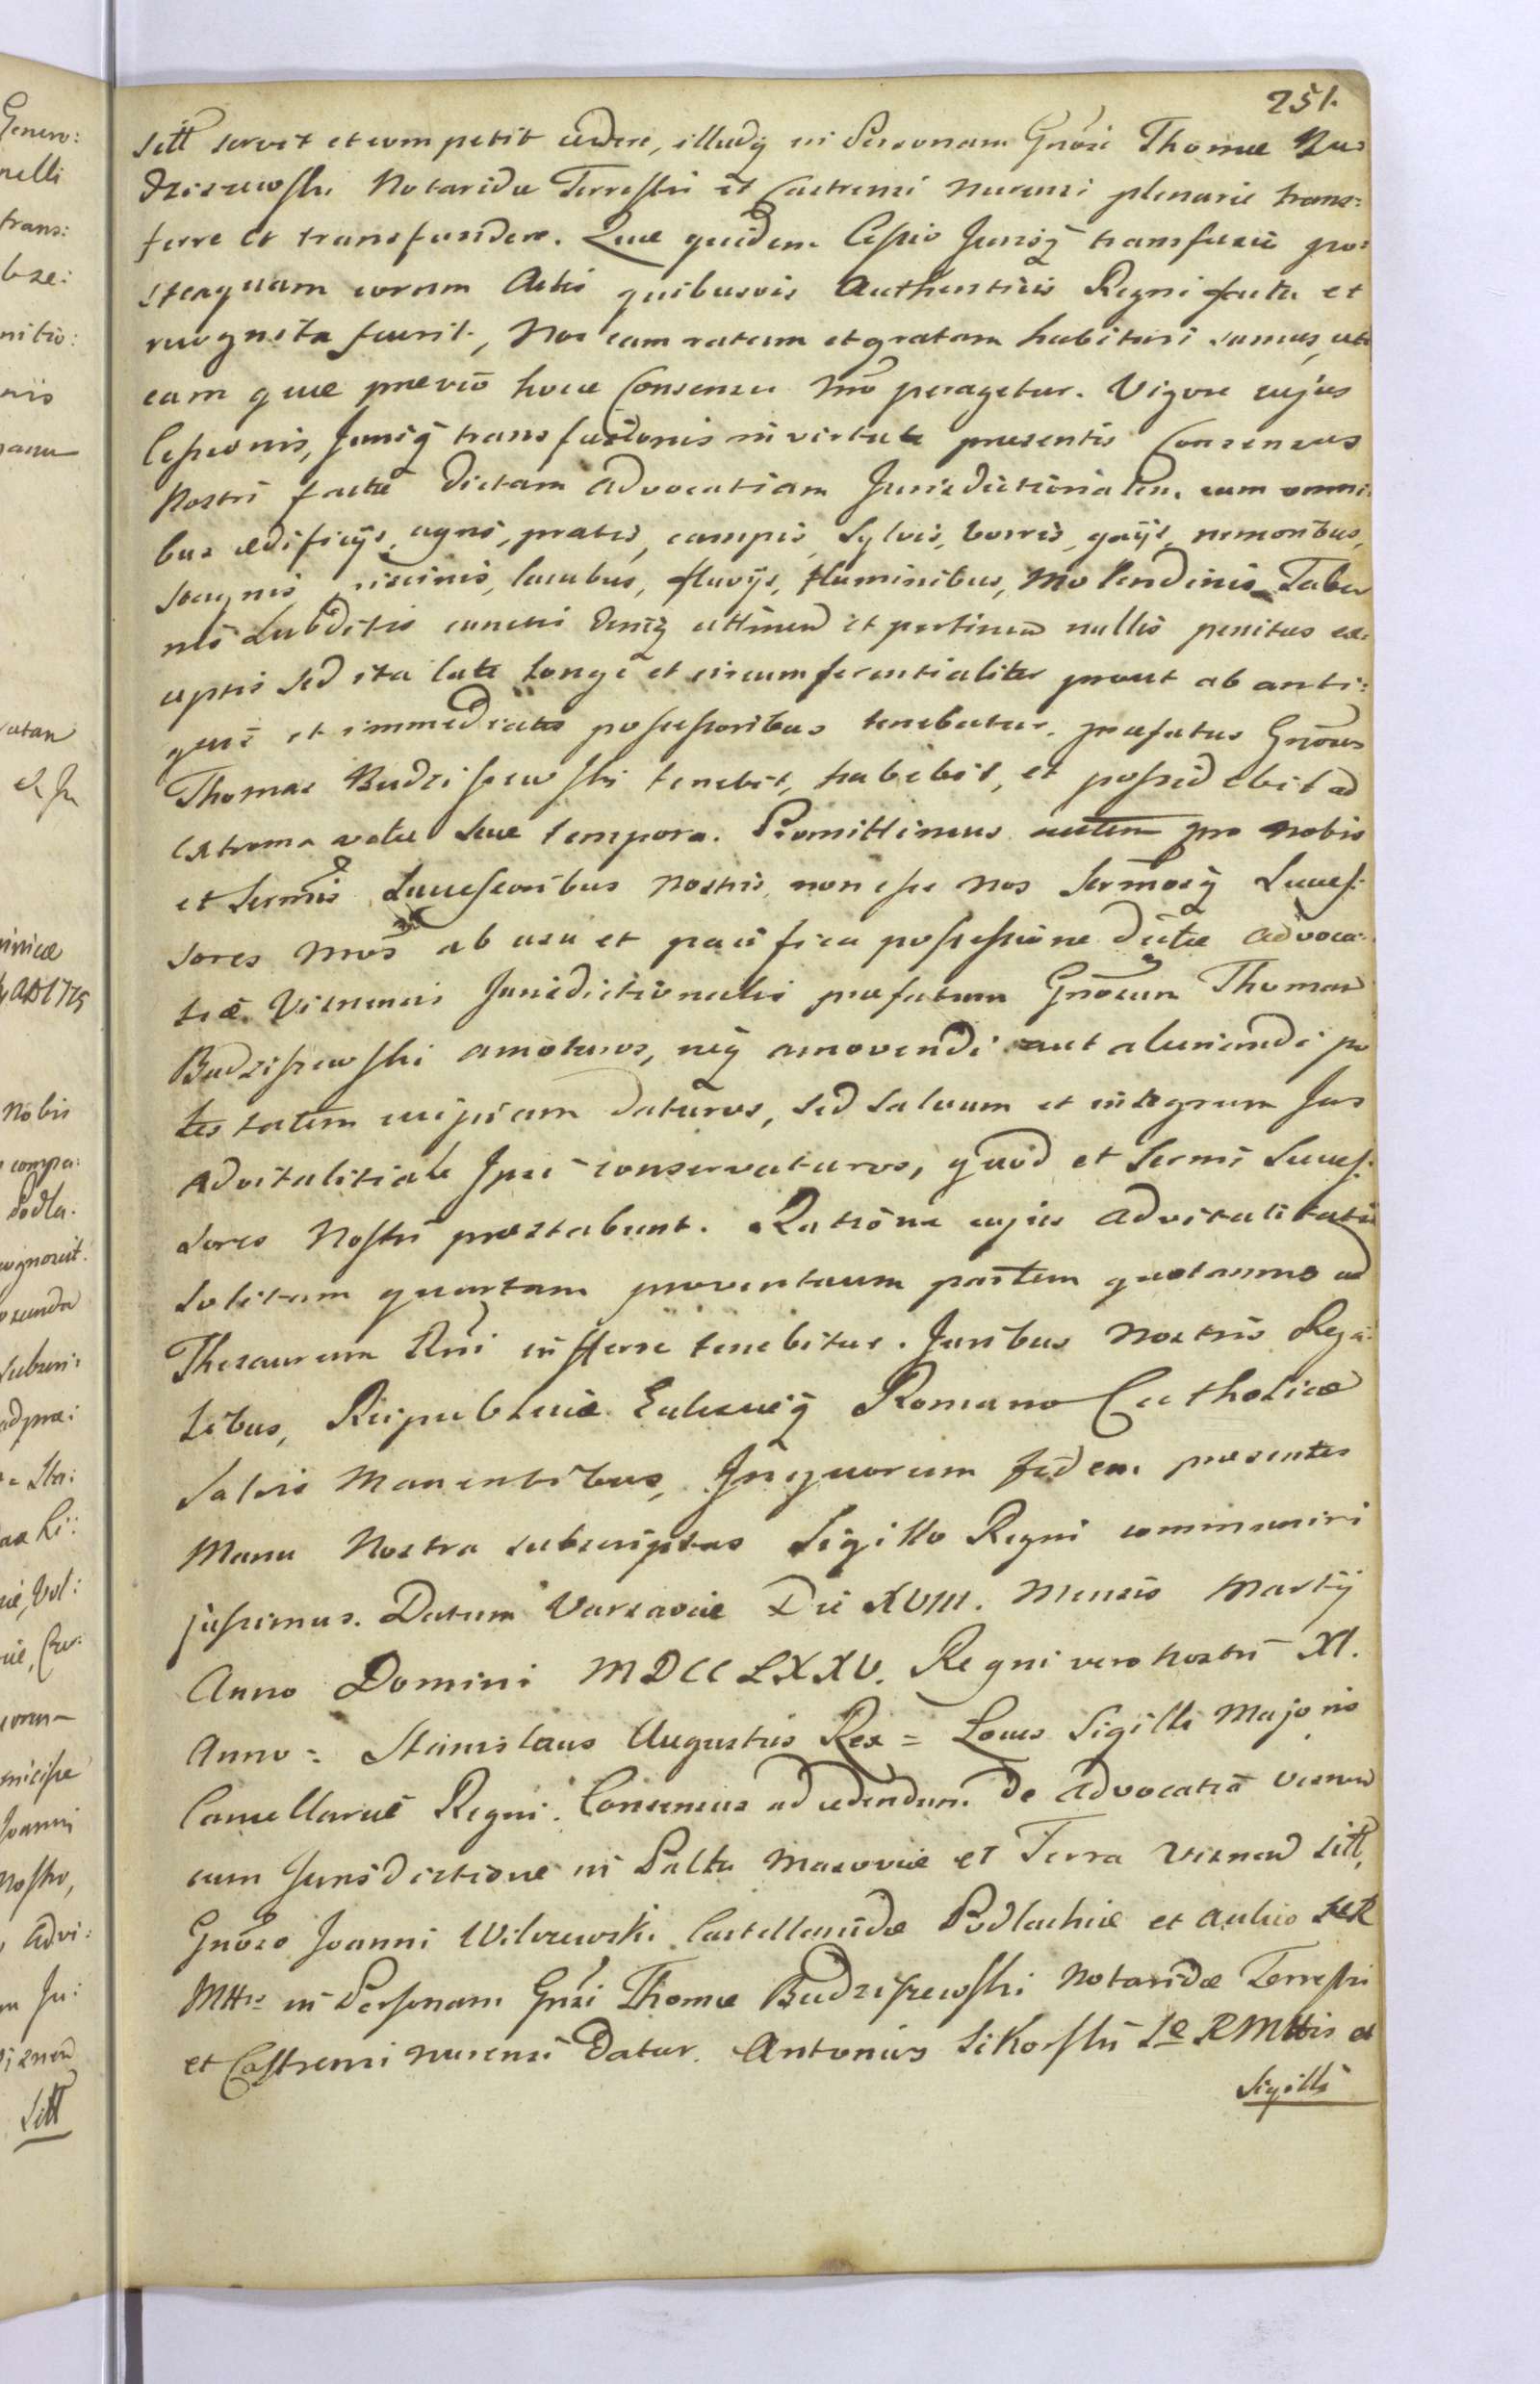 251.
sitt servit et competit cedere, illudq in Personam Gnosi Thomæ Bu=
dziszewski Notaridæ Terrestri et Castrensi Nurensi plenarie trans=
ferre et transfundere. Quæ quidem Cessio Jurisq transfusio po=
steaquam coram Actis quibusvis Authenticis Regni facta et
recognita fuerit, Nos eam ratam et gratam habituri sumus, uti
eam quæ prævio hocce Consensu Nro peragetur. Vigore cujus
Cessionis, Jurisq transfusionis in virtute præsentis Consensus
Nostri factæ dictam Advocatiam Jurisdictionalem cum omni=
bus ædificijs, agris, pratis, campis, Sylvis, borris, gaijs, nemoribus,
stagnis, piscinis, lacubus, fluvijs, fluminibus, Molendinis Taber
nis Subditis cunctis deniq attinen et pertinen nullis penitus ex=
ceptis Sed ita late longe et circumferentialiter prout ab anti=
quis et immediatis possessoribus tenebatur, præfatus Gnosus
Thomas Budziszewski tenebit, habebit, et possidebit ad
extrema vitæ suæ tempora. Promittimus autem pro Nobis
et Sermis Successoribus Nostris, non esse Nos Sermosq Succes=
sores Nros ab usu et pacifica possessione dictæ advoca=
tiæ Visnensis Jurisdictionalis præfatum Gnosum Thomam
Budziszewski amoturos, neq amovendi aut alienandi po
testatem cuipiam daturos, Sed salvum et integrum Jus
Advitalitiale Ipsi conservaturos, quod et Sermi Succes=
sores Nostri præstabunt. Ratione cujus advitalitatis
Solitam quartam proventuum partem quotannis ad
Thesaurum Rni inferre tenebitur. Juribus Nostris Rega=
libus, Reipublicæ Eclesiæq Romano Catholicæ
Salvis Manentibus, In quorum fidem præsentes
Manu Nostra subscriptas Sigillo Regni communiri
jussimus. Datum Varsaviæ Die XVIII. Mensis Martij
Anno Domini MDCCLXXV. Regni vero Nostri XI.
Anno = Stanislaus Augustus Rex = Locus Sigilli Majoris
Cancellariæ Regni. Consensus ad cedendum de Advocatia Visnen
cum Jurisdictione in Paltu Masoviæ et Terra Visnen sitt,
Gnoso Joanni Wilczewski Castellanidæ Podlachiæ et Aulico SeR
Mttis in Personam Gnsi Thomæ Budziszewski Notaridæ Terrestri
et Castrensi Nurensi Datur. Antonius Sikorski Se RMttis et
Sigilli